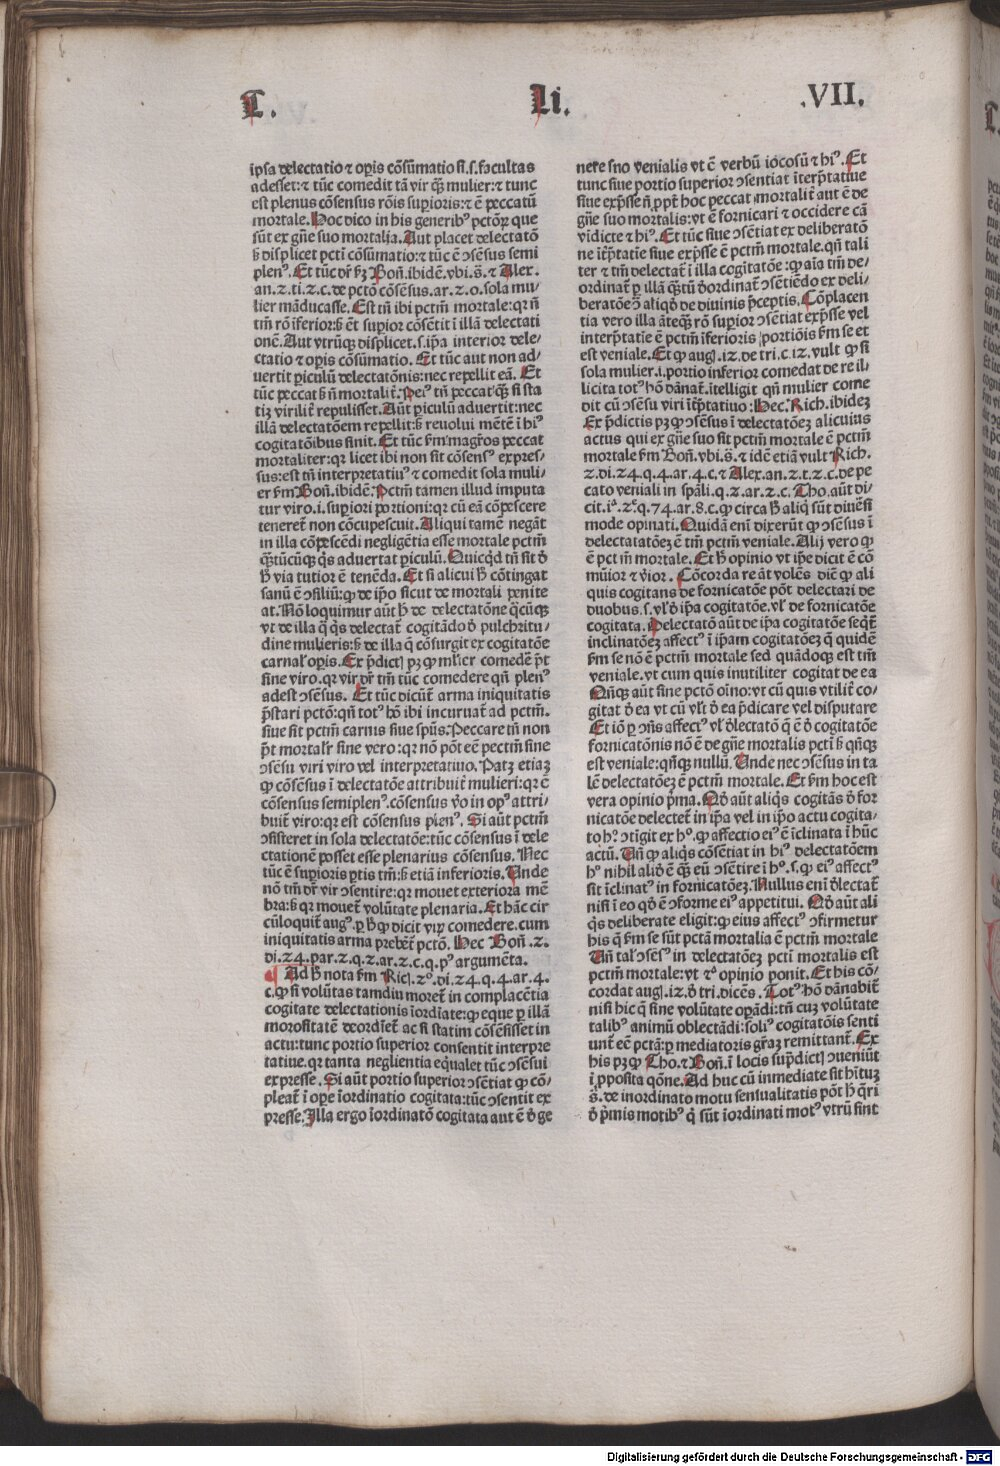 L.
Li.
.VII.
ipsa delectatio ⁊ oꝑis cōsūmatio si.s.facultas
adesset:⁊ tūc comedit tā vir qȝ mulier:⁊ tunc
est plenus cōsensus rōis suꝑioris:⁊ ē peccatū
mortale. Hoc dico in his generibꝰ pctōꝝ que
sūt ex gn̄e suo mortalia. Aut placet delectatō
ß displicet pcti cōsūmatio:⁊ tūc ē ↄsēsus semi
plenꝰ. Et tūc dr̄ ẜꝫ Boń.ibidē.vbi.s̄.⁊ Alex.
an.2.ti.2.c.de pctō cōsēsus.ar.2.o.sola mu/
lier māducasse. Est tn̄ ibi pctm̄ mortale:qꝛ ñ
tm̄ rō īferior:ß ēt suꝑior cōsētit ī illā delectati
onē. Aut vtrūqꝫ displicet.s.ip̄a interior dele/
ctatio ⁊ oꝑis cōsūmatio. Et tūc aut non ad/
uertit ꝑiculū delectatōnis:nec repellit eā. Et
tūc peccat ß ñ mortalit̄. Peiꝰ tn̄ peccat qȝ si sta
tiꝫ virilit̄ repulisset. Aūt ꝑiculū aduertit:nec
illā delectatōem repellit:ß reuolui mētē ī hiꝰ
cogitatōibus sinit. Et tūc ẜm magr̄os peccat
mortaliter:qꝛ licet ibi non sit cōsēsꝰ expres/
sus:est tn̄ interpretatiuꝰ ⁊ comedit sola muli/
er ẜm Boń.ibidē. Pctm̄ tamen illud imputa
tur viro.i.suꝑiori portioni:qꝛ cū eā cōpescere
teneret̄ non cōcupescuit. Aliqui tamē negāt
in illa cōpescēdi negligētia esse mortale pctm̄
qȝtūcūqꝫ qͥs aduertat ꝑiculū. Quicqͥd tn̄ sit ð
ħ via tutior ē tenēda. Et si alicui ħ cōtingat
sanū ē ↄsiliū:qꝫ de ip̄o sicut de mortali penite
at. Nō loquimur aūt ħ de delectatōne q̄cūqꝫ
vt de illa q̄ qͥs delectat̄ cogitādo ð pulchritu/
dine mulieris:ß de illa q̄ cōsurgit ex cogitatōe
carnal' oꝑis. Ex p̄dictꝭ pꝫ qꝫ ml'ier comedē p̄t
sine viro.qꝛ vir dr̄ tm̄ tūc comedere qñ plenꝰ
adest ↄsēsus. Et tūc dicūt̄ arma iniquitatis
p̄stari pctō:qñ totꝰ hō ibi incuruat̄ ad pctm̄.
siue sit pctm̄ carnis siue spūs. Peccare tn̄ non
p̄t mortal'r sine vero:qꝛ nō pōt eē pectm̄ sine
ↄsēsu viri viro vel interpretatiuo. Patꝫ etiaꝫ
qꝫ cōsēsus ī delectatōe attribuit̄ mulieri:qꝛ ē
cōsensus semiplenꝰ.cōsensus v̊o in opꝰ attri/
buit̄ viro:qꝛ est cōsensus plenꝰ. Si aūt pctm̄
ↄsisteret in sola delectatōe:tūc cōsensus ī dele
ctationē posset esse plenarius cōsensus. Nec
tūc ē suꝑioris ꝑtis tm̄:ß etiā inferioris. Unde
nō tm̄ dr̄ vir ↄsentire:qꝛ mouet exteriora mē
bra:ß qꝛ mouet̄ volūtate plenaria. Et hāc cir
cūloquit̄ augꝰ.ꝑ ħ qꝫ dicit viꝝ comedere.cum
iniquitatis arma prebēt̄ pctō. Hec Boń.2.
di.24.par.2.q.2.ar.2.c.q.pꝰ argumēta.
Ad ħ nota ẜm Ricḣ.2°.di.24.q.4.ar.4.
c.qꝫ si volūtas tamdiu moret̄ in complacētia
cogitate delectationis īordīate:qꝫ eque ꝑ illā
morositatē deordīet̄ ac si statim cōsēsisset in
actu:tunc portio superior consentit interpre
tatiue.qꝛ tanta neglientia eq̄ualet tūc ↄsēsui
expresse. Si aūt portio superior ↄsētiat qꝫ cō/
pleat̄ ī oꝑe īordinatio cogitata:tūc ↄsentit ex
presse. Illa ergo īordinatō cogitata aut ē ð ge
nere suo venialis vt ē verbū iocosū ⁊ hiꝰ. Et
tunc siue portio superior ↄsentiat īterp̄tatiue
siue exp̄sse ñ ꝓpt̄ hoc peccat mortalit̄ aut ē de
gn̄e suo mortalis:vt ē fornicari ⁊ occidere cā
vīdicte ⁊ hiꝰ. Et tūc siue ↄsētiat ex deliberatō
ne īt̄p̄tatie siue exp̄sse ē pctm̄ mortale.qñ tali
ter ⁊ tm̄ delectat̄ ī illa cogītatōe:qꝫ aīa tm̄ de/
ordinat̄ ꝑ illā qȝtū ð̄ordinat̄ ↄsētiēdo ex deli/
beratōe ↄ̄ aliqð de diuinis p̄ceptis. Cōplacen
tia vero illa āteqȝ rō suꝑior ↄsētiat exp̄sse vel
interp̄tatie ē pctm̄ īferioris portiōis ẜm se et
est veniale. Et qꝫ augꝰ.12.de tri.c.12.vult qꝫ si
sola mulier.i.portio inferior comedat de re il/
licita totꝰ hō dānat̄.ītelligit qñ mulier come
dit cū ↄsēsu viri īt̄p̄tatiuo: Hec. Rich.ibideꝫ
Ex p̄dictis pꝫ qꝫ ↄsēsus ī delectatōeꝫ alicuius
actus qui ex gn̄e suo sit pctm̄ mortale ē pctm̄
mortale ẜm Boń.vbi.s̄.⁊ idē etiā vult Rich.
2.di.24.q.4.ar.4.c.⁊ Alex.an.2.t.2.c.de pe
cato veniali in sp̄ali.q.2.ar.2.c. Tho.aūt di/
cit.iꝰ.2ͤ.q.74.ar.8.c.qꝫ circa ħ aliqͥ sūt diuersi
mode opinati. Quidā enī dixerūt qꝫ ↄsēsus ī
delectatatōeꝫ ē tm̄ pctm̄ veniale. Alij vero qꝫ
ē pct m̄ mortale. Et ħ opinio vt ip̄e dicit ē cō
mūior ⁊ v̊ior. Cōcorda re āt volēs diē qꝫ ali
quis cogitans de fornicatōe pōt delectari de
duobus.s.vl' ð ip̄a cogitatōe.vl' de fornicatōe
cogitata. Delectatō aūt de ip̄a cogitatōe seqͥt̄
inclinatōeꝫ affectꝰ ī ip̄am cogitatōeꝫ q̄ quidē
ẜm se nō ē pctm̄ mortale sed quādoqꝫ est tm̄
veniale.vt cum quis inutiliter cogitat de ea
Qn̄qꝫ aūt sine pctō oīno:vt cū quis vtilit̄ co/
gitat ð ea vt cū vl't ð ea p̄dicare vel disputare
Et iō ꝑ ↄn̄s affectꝰ vl' ð̄lectatō q̄ ē ð cogitatōe
fornicatōnis nō ē de gn̄e mortalis pcti ß qñqꝫ
est veniale:qñqꝫ nullū. Unde nec ↄsēsus in ta
lē delectatōeꝫ ē pctm̄ mortale. Et ẜm hoc est
vera opinio p̄ma. Qð aūt aliqͥs cogitās ð for
nicatōe delectet̄ in ip̄a vel in ip̄o actu cogita/
to hꝰ ↄtīgit ex hꝰ.qꝫ affectio eiꝰ ē īclinata ī hūc
actū. Un̄ qꝫ aliqͥs cōsētiat in hiꝰ delectatōem
hꝰ nihil alið ē qȝ eū ↄsētire ī hꝰ.s.qꝫ eiꝰ affectꝰ
sit īclinatꝰ in fornicatōeꝫ. Nullus enī ð̄lectat̄
nisi ī eo qð ē ↄforme eiꝰ appetitui. Qð aūt ali
qͥs deliberate eligit:qꝫ eius affectꝰ ↄfirmetur
his q̄ ẜm se sūt pctā mortalia ē pctm̄ mortale
Un̄ tal' ↄsēsꝰ in delectatōeꝫ pcti mortalis est
pctm̄ mortale:vt 2ͣ opinio ponit. Et his cō/
cordat augꝰ.12.ð tri.dicēs. Totꝰ hō dānabit̄
nisi hic q̄ sine volūtate oꝑādi:tn̄ cuꝫ volūtate
talibꝰ animū oblectādi:soliꝰ cogitatōis senti
unt̄ eē pctā:ꝑ mediatoris gr̄aꝫ remittant̄. Ex
his pꝫ qꝫ Tho.⁊ Boń.ī locis sup̄dictꝭ ↄueniūt
ī ꝓposita qōne. Ad huc cū inmediate sit hītuꝫ
s̄.de inordinato motu sensualitatis pōt ħ qͥri
ð p̄mis motibꝰ q̄ sūt īordinati motꝰ vtrū sint
Digitalisierung gefördert durch die Deutsche Forschungsgemeinschaft - DFG